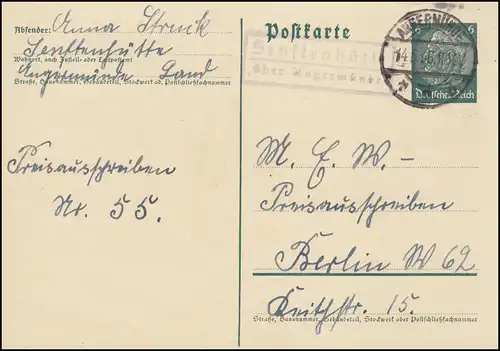 Absender: Anna Struck
Senftenhütte
Wohnort, auch Zustell- oder Leitpostamt
Angermünde Land
Straße, Hausnummer, Gebäudeteil, Stockwerk od. Postschließfachnummer
Preisausschreiben
Nr. 55.
Postkarte
Senftenhütte
über Angermünde
ANGERMÜNDE
6 6
Deutsches Reich
M. E. W.-
Preisausschreiben
Berlin W 62
Keithstr. 15.
Straße, Hausnummer, Gebäudeteil, Stockwerk oder Postschließfachnummer